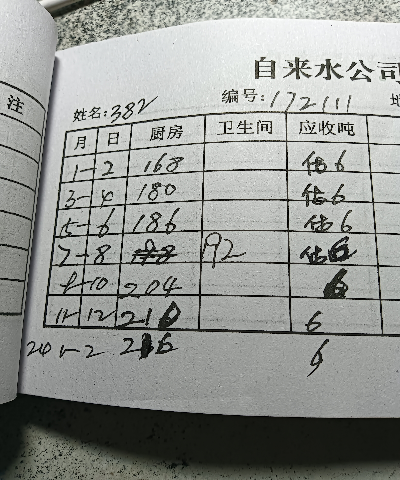 注
自来水公司
姓名:382 编号:172111
月 日 厨房 卫生间 应收吨
1-2 168 估6
3-4 180 估6
5-6 186 估6
7-8 192 估6
9-10 204 6
11-12 210 6
1-2 216 6